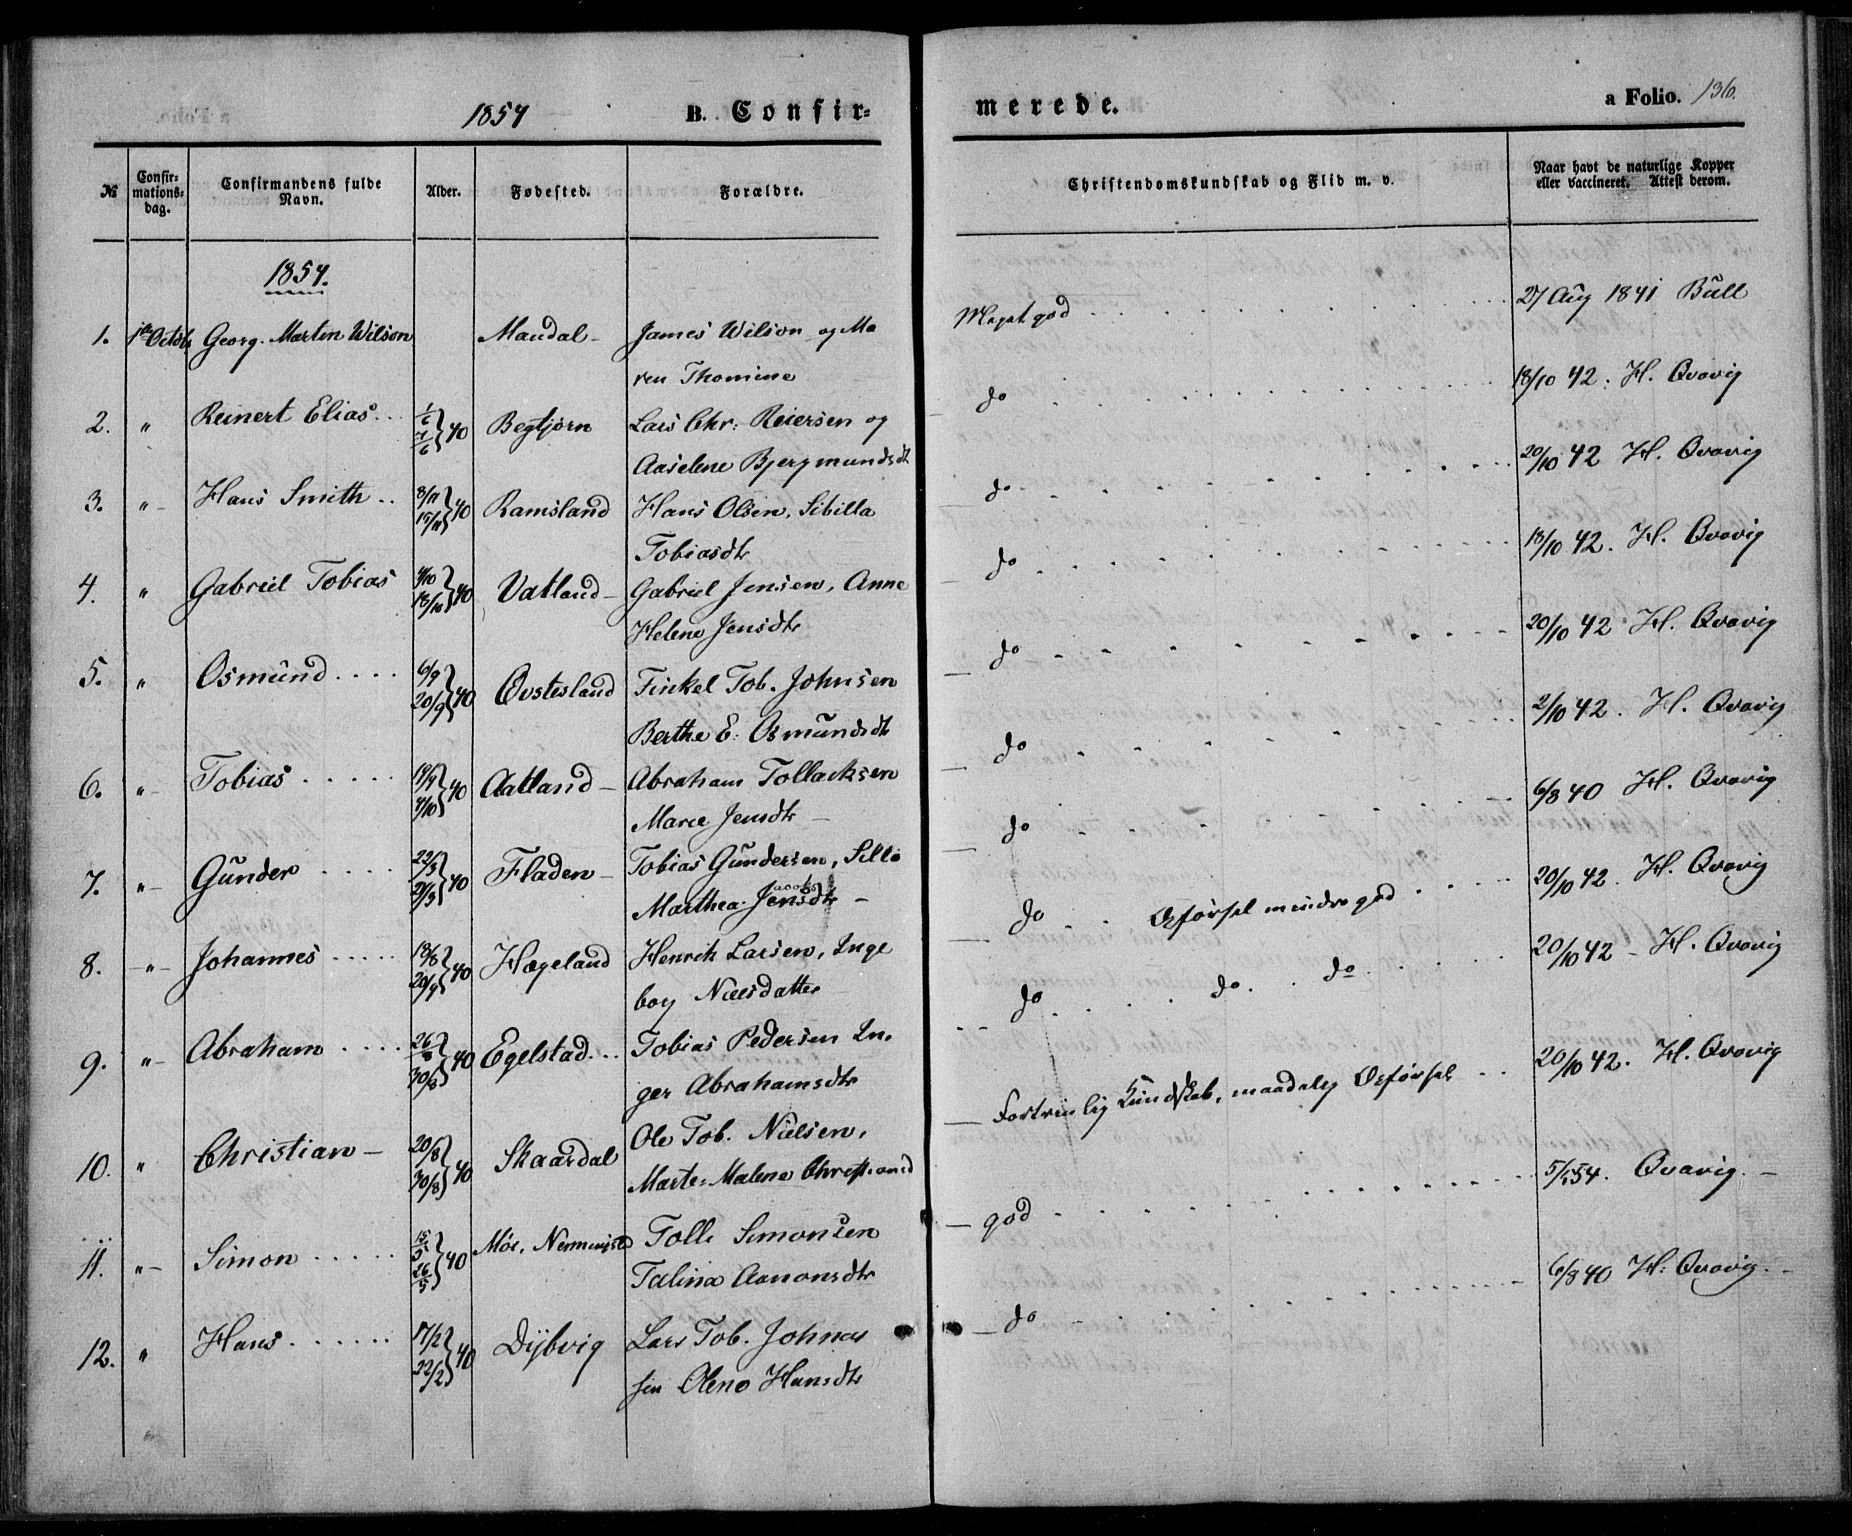 1854 B. Confir-
merede. a Folio. 136.
№ Confir-mations-dag. Confirmandens fulde Navn. Alder. Fødested. Forældre. Christendomskundskab og Flid m. v. Naar havt de naturlige Kopper eller vaccineret. Attest derom.
1854.
1. 1ste Octob Georg Martin Wilson Mandal - James Wilson og Ma Meget god 27 Aug 1841 Bull
ren Thomine
2. " Reinert Elias 1/6 7/6 40 Begtjorn Lars Chr: Reiersen og do 18/10 42. H. Qvavig
Aaselene Bjergmundsdt
3. " Hans Smith 8/11 15/11 40 Ramsland Hans Olsen, Sibilla do 20/10 42 H. Qvavig
Tobiasdtr
4. " Gabriel Tobias 4/10 18/10 40 Vatland - Gabriel Jensen, Anne do 18/10 42. H. Qvavig
Helene Jensdtr
5. " Osmund 6/9 20/9 40 Øvstesland Tinkel Tob. Johnsen do 20/10 42 H. Qvavig
Berthe E: Osmundsdt
6. " Tobias 19/9 4/10 40 Aatland - Abraham Tollacksen do 2/10 42. H. Qvavig
Marie Jensdtr -
7. " Gunder 22/3 40 Fladen - Tobias Gundersen, Sille do 6/8 40 H. Qvavig
Marthea Jensdtr -
8. " Johannes 18/8 20/9 40 Hægeland Henrik Larsen, Inge do Opførsel mindre god 20/10 42. H. Qvavig
borg Nielsdatter
9. " Abraham 26/8 30/8 40 Egelstad Tobias Pedersen In- do do. do 20/10 42 - H. Qvavig
ger Abrahamsdtr
10. " Christian - 20/8 30/8 40 Skaardal Ole Tob. Nielsen, Fortrinlig Kundskab, maadelig Opførsel 20/10 42. H. Qvavig
Marte Malene Christiansd
11. " Simon 15/5 26/5 40 Møe, Tolle Simonsen god 5/5 54. Qvavig. -
Talina Aanonsdtr
12. " Hans 17/2 22/2 40 Dÿbvig Lars Tob. Johnas do 6/8 40 H. Qvavig. -
sen Olene Hansdtr